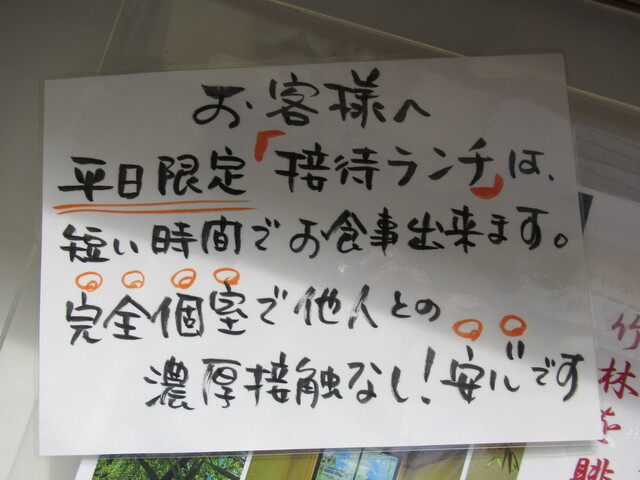 お客様へ
平日限定「接待ランチ」は、
短い時間でお食事出来ます。
完全個室で他人との
濃厚接触なし!安心です
竹林を眺